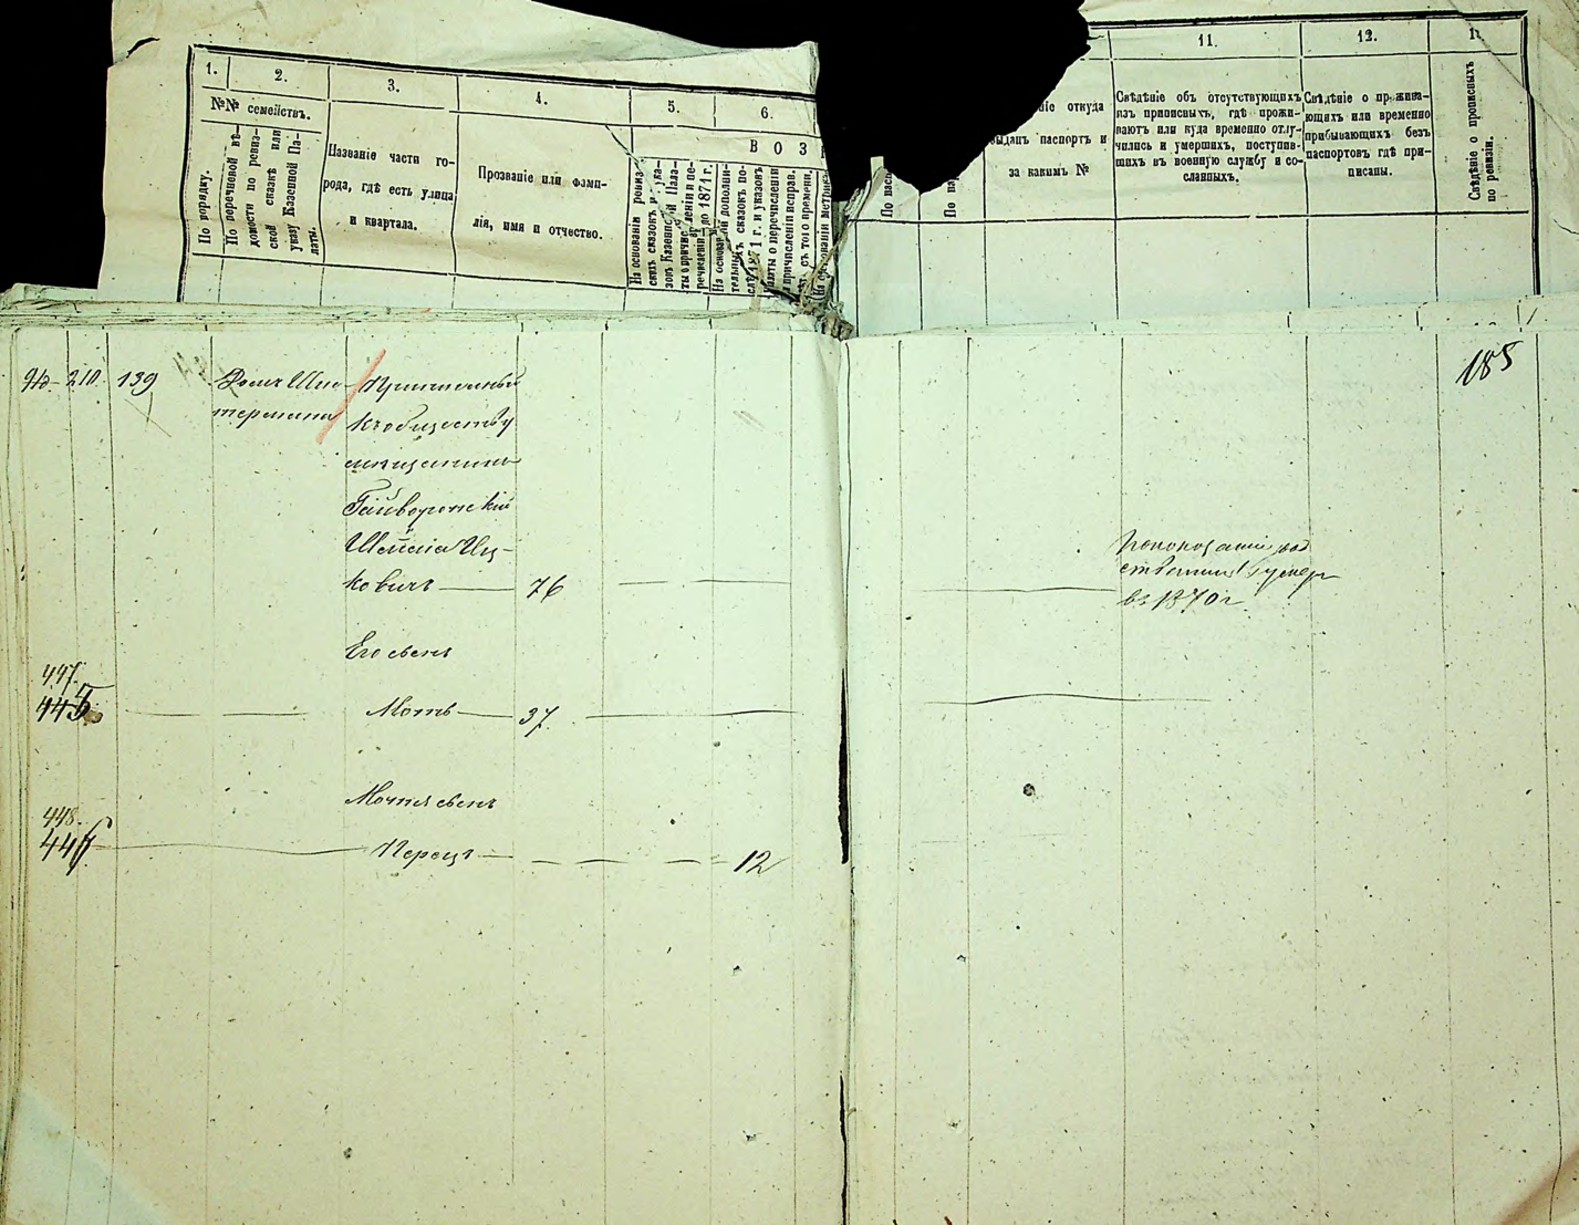 1.
2.
3.
4.
5.
6.
11.
12.
№№ семействъ.
По порядку.
По перечневой вѣ-
домости по ревиз-
ской сказкѣ или
указу Казенной Па-
латы.
Названіе части го-
рода, гдѣ есть улица
и квартала.
Прозваніе или фами-
лія, имя и отчество.
В О З
На основаніи ревиз-
скихъ сказокъ и ука-
зовъ Казенной Пала-
ты о причисленіи и пе-
речисленіи до 1871 г.
На основаніи дополни-
тельныхъ сказокъ по-
слѣ 1871 г. и указовъ
о перечисленіи
причисленіи исправ.
съ того времени.
На основаніи метри
По пасп
По
откуда
выданъ паспортъ и
за какимъ №
Свѣдѣніе объ отсутствующихъ
изъ приписныхъ, гдѣ прожи-
ваютъ или куда временно отлу-
чились и умершихъ, поступив-
шихъ въ военную службу и со-
сланныхъ.
Свѣдѣніе о прожива-
ющихъ или временно
прибывающихъ безъ
паспортовъ гдѣ при-
писаны.
Свѣдѣніе о прописныхъ
по ревизіи.
185
210. 139 Домъ
къ обществу
Гайворонскій
Иц-
ковичъ — 76
умер
въ 1870 г
Его сынъ
447.
445 Моть — 37.
Мотя сынъ
448.
446 Перецъ — 12